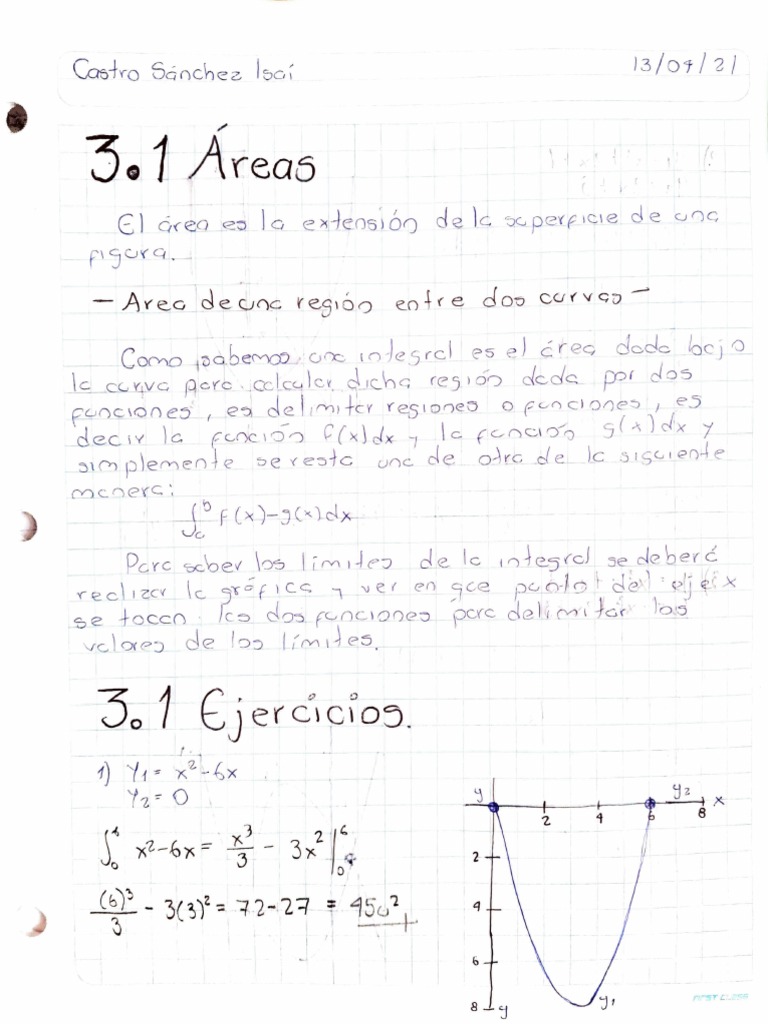 Castro Sánchez Isaí 13/04/21
3.1 Áreas
El área es la extensión de la superficie de una
figura.
- Area de una región entre dos curvas -
Como sabemos una integral es el área dada bajo
la curva para calcular dicha región dada por dos
funciones, es delimitar regiones o funciones, es
decir la función f(x)dx y la función g(x)dx y
simplemente se resta una de otra de la siguiente
manera:
∫ₐᵇ f(x)-g(x)dx
Para saber los límites de la integral se deberá
realizar la gráfica y ver en que punto del eje x
se tocan las dos funciones para delimitar los
valores de los límites.
3.1 Ejercicios.
1) Y₁ = x²-6x
Y₂ = 0
∫₀⁶ x²-6x = x³/3 - 3x² |₀⁶
(6)³/3 - 3(3)² = 72-27 = 45u²
y y₂ x
2 4 6 8
2
4
6
8 y y₁
FIRST CLASS